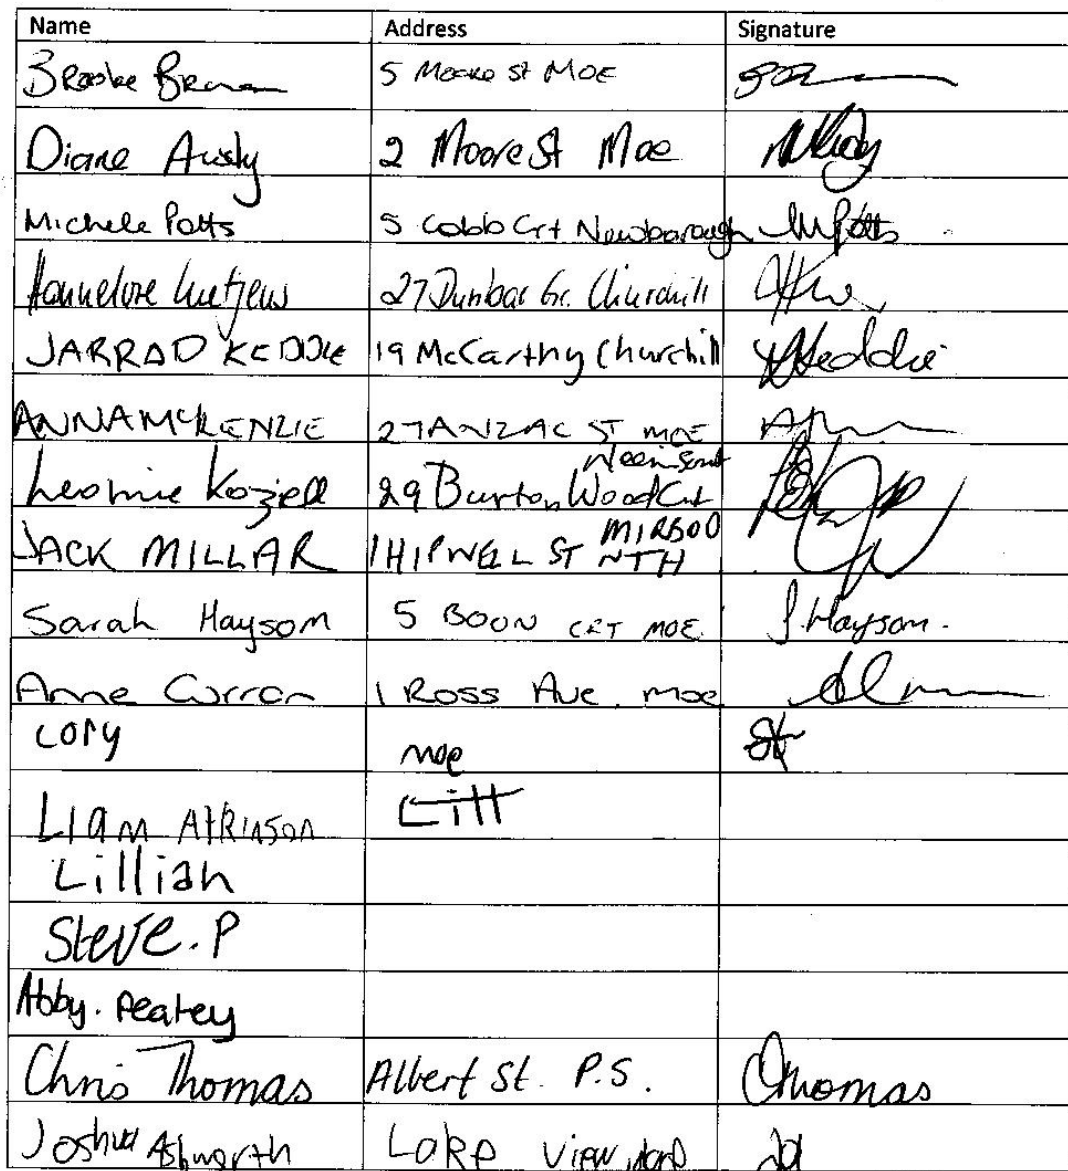 Name Address Signature
Brooke 5 Moore St MOE
Diane 2 Moore St Moe
Michele Potts 5 Cobb Crt Newborough MPotts
Hannelore Lutjens 27 Dunbar Gr. Churchill
JARRAD KEDDIE 19 McCarthy Churchill Keddie
ANNA MCKENZIE 27 ANZAC ST MOE
Leonnie Koziell 29 Burton Wood Crt
JACK MILLAR 1 HIPWELL ST MIRBOO
NTH
Sarah Haysom 5 BOON CRT MOE S. Haysom.
Anne Curran 1 Ross Ave. moe
Cory moe
Liam Atkinson
Lillian
Steve. P
Abby. Peatey
Chris Thomas Albert St. P.S. CThomas
Joshua Ashworth Lake View